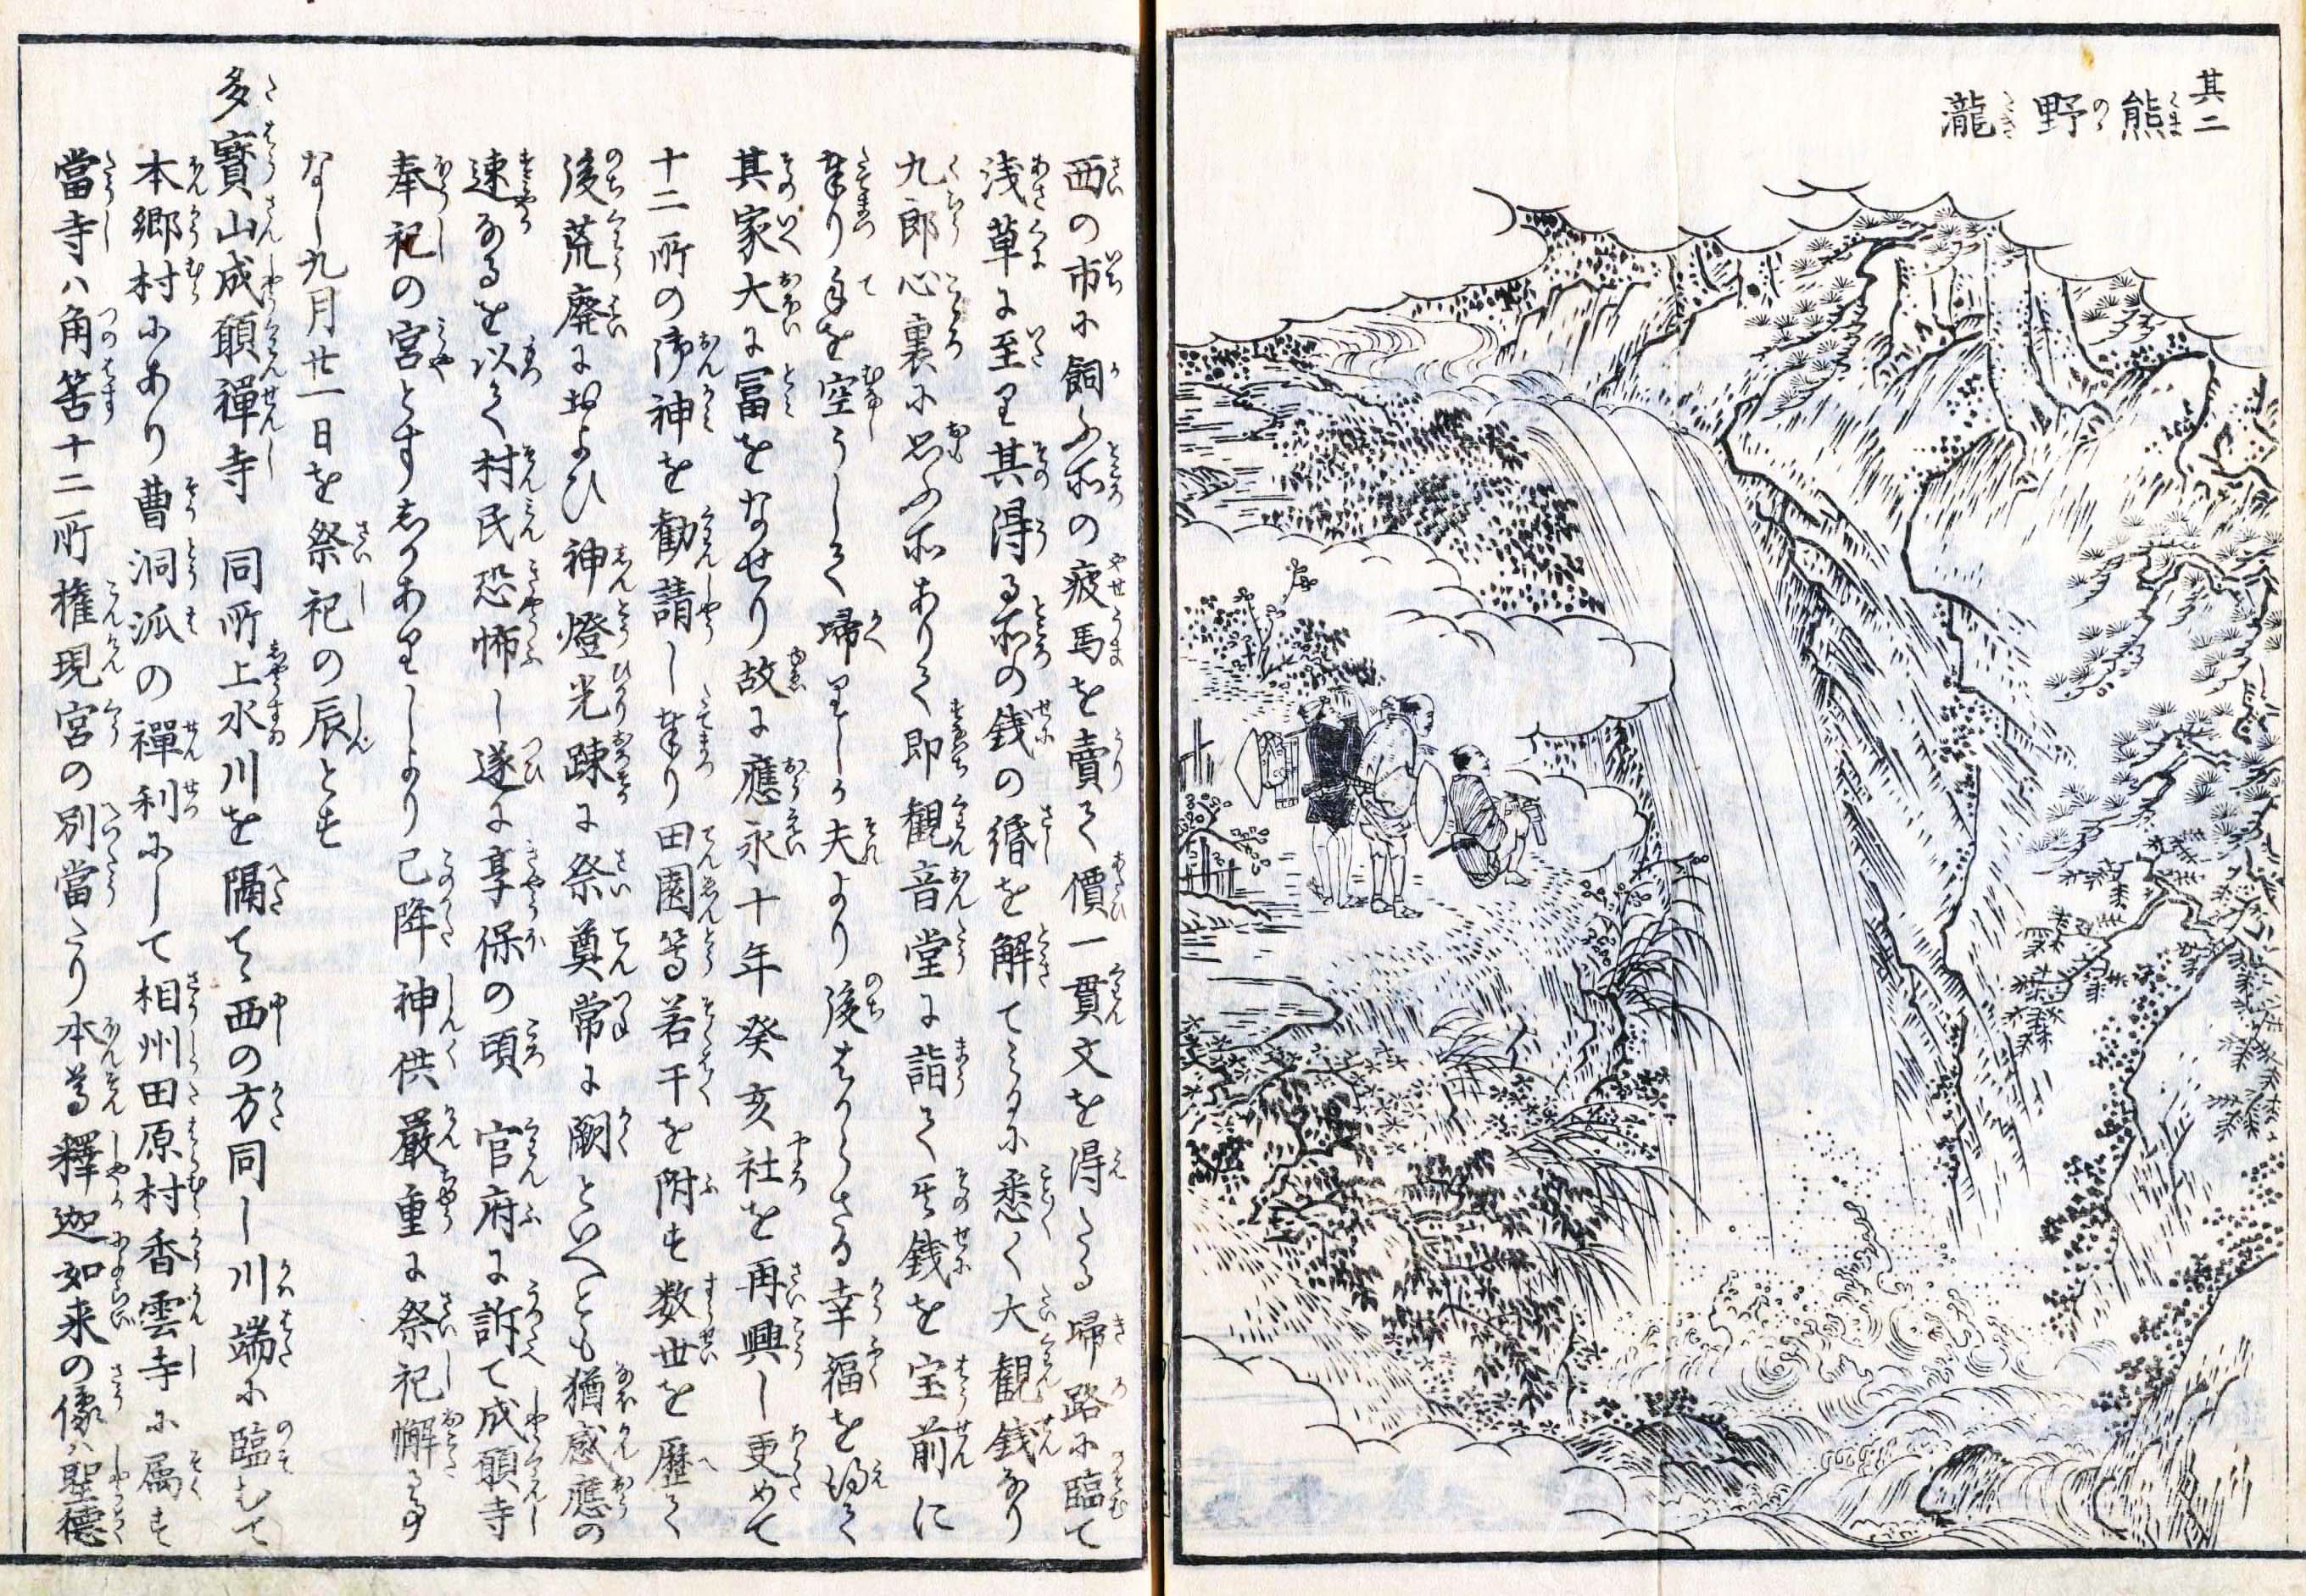 其二
熊野瀧
西の市に飼ふ所の疲馬を賣て價一貫文を得たる帰路に臨て
浅草に至り其得る所の銭の緡を解てみるに悉く大観銭なり
九郎心裏に思ふ所ありて即観音堂に詣て其銭を宝前に
奉り身を空うして帰りしか夫より後はからさる幸福を得て
其家大に冨をなせり故に應永十年癸亥社を再興し更めて
十二所の御神を勧請し奉り田園等若干を附す数世を歴て
後荒廃におよひ神燈光疎に祭奠常に闕といへとも猶感應の
速なるを以て村民恐怖し遂に享保の頃官府に訴て成願寺
奉祀の宮とすしかありしより已降神供嚴重に祭祀懈る事
なし九月廿一日を祭祀の辰とす
多寳山成願禅寺 同所上水川を隔てゝ西の方同し川端に臨むて
本郷村にあり曹洞派の禅刹にして相州田原村香雲寺に属す
當寺ハ角筈十二所権現宮の別當たり本尊釋迦如来の像ハ聖徳